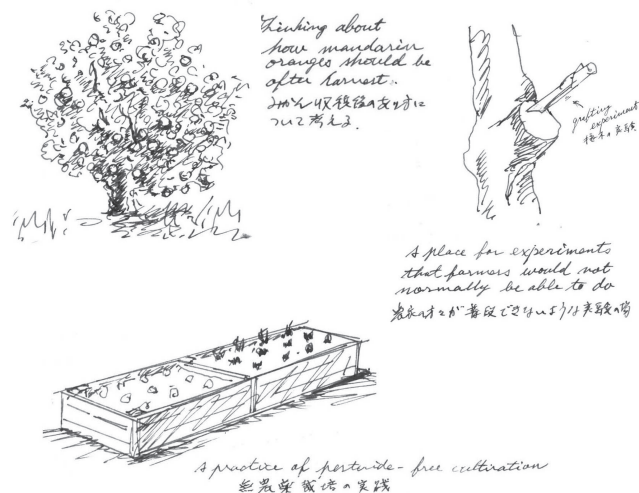 Thinking about
how mandarin
oranges should be
after harvest.
みかん収穫後のあり方に
ついて考える.
grafting
experiment
接木の実験
A place for experiments
that farmers would not
normally be able to do
農家の方々が普段できないような実験の場
A practice of pesticide-free cultivation
無農薬栽培の実践